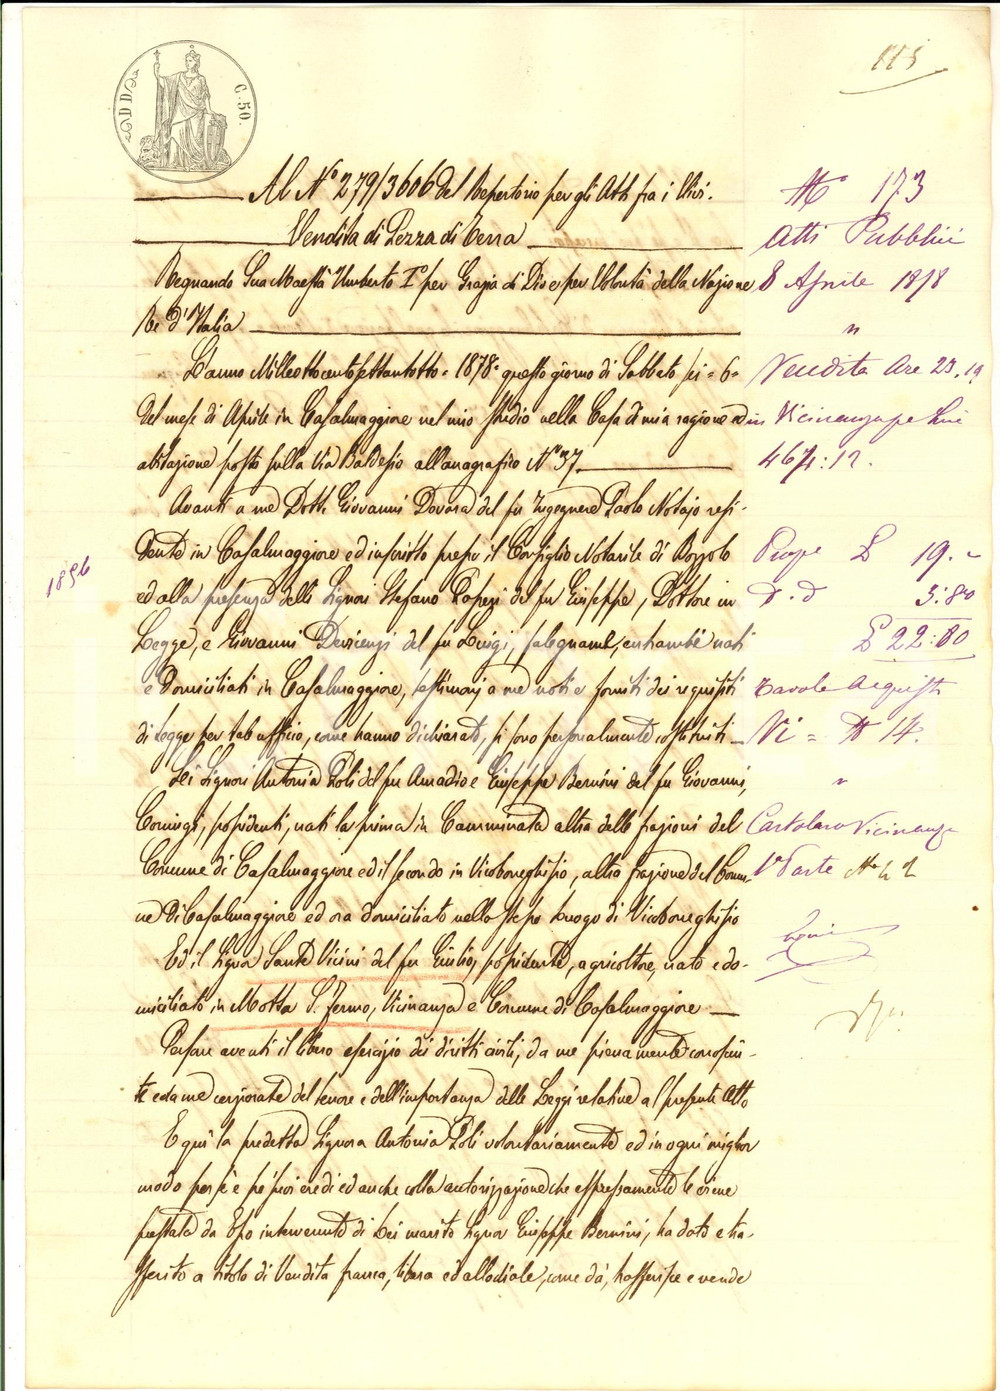 115
C. 50.
Al N° 279/3606 del Repertorio per gli Atti fra i Vivi.
Vendita di Pezza di Terra
Regnando Sua Maestà Umberto I° per Grazia di Dio e per Volontà della Nazione
Re d'Italia
L'anno Milleottocentosettantotto = 1878 = questo giorno di Sabbato sei = 6 =
del mese di Aprile in Casalmaggiore nel mio studio nella Casa di mia ragione ed
abitazione posto sulla Via Baldesio all'anagrafico N° 37.
Avanti a me Dott. Giovanni Dovara del fu Ingegnere Paolo Notajo resi-
dente in Casalmaggiore ed inscritto presso il Consiglio Notarile di Bozzolo
ed alla presenza delli Signori Stefano del fu Giuseppe, Dottore in
Legge, e Giovanni del fu Luigi, falegname, entrambi nati
e domiciliati in Casalmaggiore, testimonj a me noti e forniti dei requisiti
di Legge per tale ufficio, come hanno dichiarato, si sono personalmente costituiti
Lei Signori Antonia Poli del fu Amadio e Giuseppe Bernini del fu Giovanni,
Coniugi, possidenti, nati la prima in Camminata altra delle frazioni del
Comune di Casalmaggiore ed il secondo in Vicoboneghisio, altra frazione del Comu-
ne di Casalmaggiore ed ora domiciliato nello stesso luogo di Vicoboneghisio
Ed il Signor Sante Vicini del fu Giulio, possidente, agricoltore, nato e do-
miciliato in Motta S. Fermo, Vicinanza e Comune di Casalmaggiore
Persone aventi il libero esercizio dei diritti civili, da me pienamente conosciu-
te e da me cerziorate del tenore e dell'importanza delle Leggi relative al presente Atto
E qui la predetta Signora Antonia Poli volontariamente ed in ogni miglior
modo per sè e pe' suoi eredi ed anche colla autorizzazione che espressamente le viene
prestata da Esso intervenuto di Lei marito Signor Giuseppe Bernini, ha dato e tra-
sferito a titolo di Vendita franca, libera ed allodiale, come dà, trasferisce e vende
N° 173
Atti Pubblici
8 Aprile 1878
"
Vendita Are 23.19
in Vicinanza pe Lire
467:12.
Prop £ 19.-
D.d 3:80
£ 22:80
Tavole Acquisti
Vi = N 14.
"
Cartolaro Vicinanze
1ª Parte N°
1896